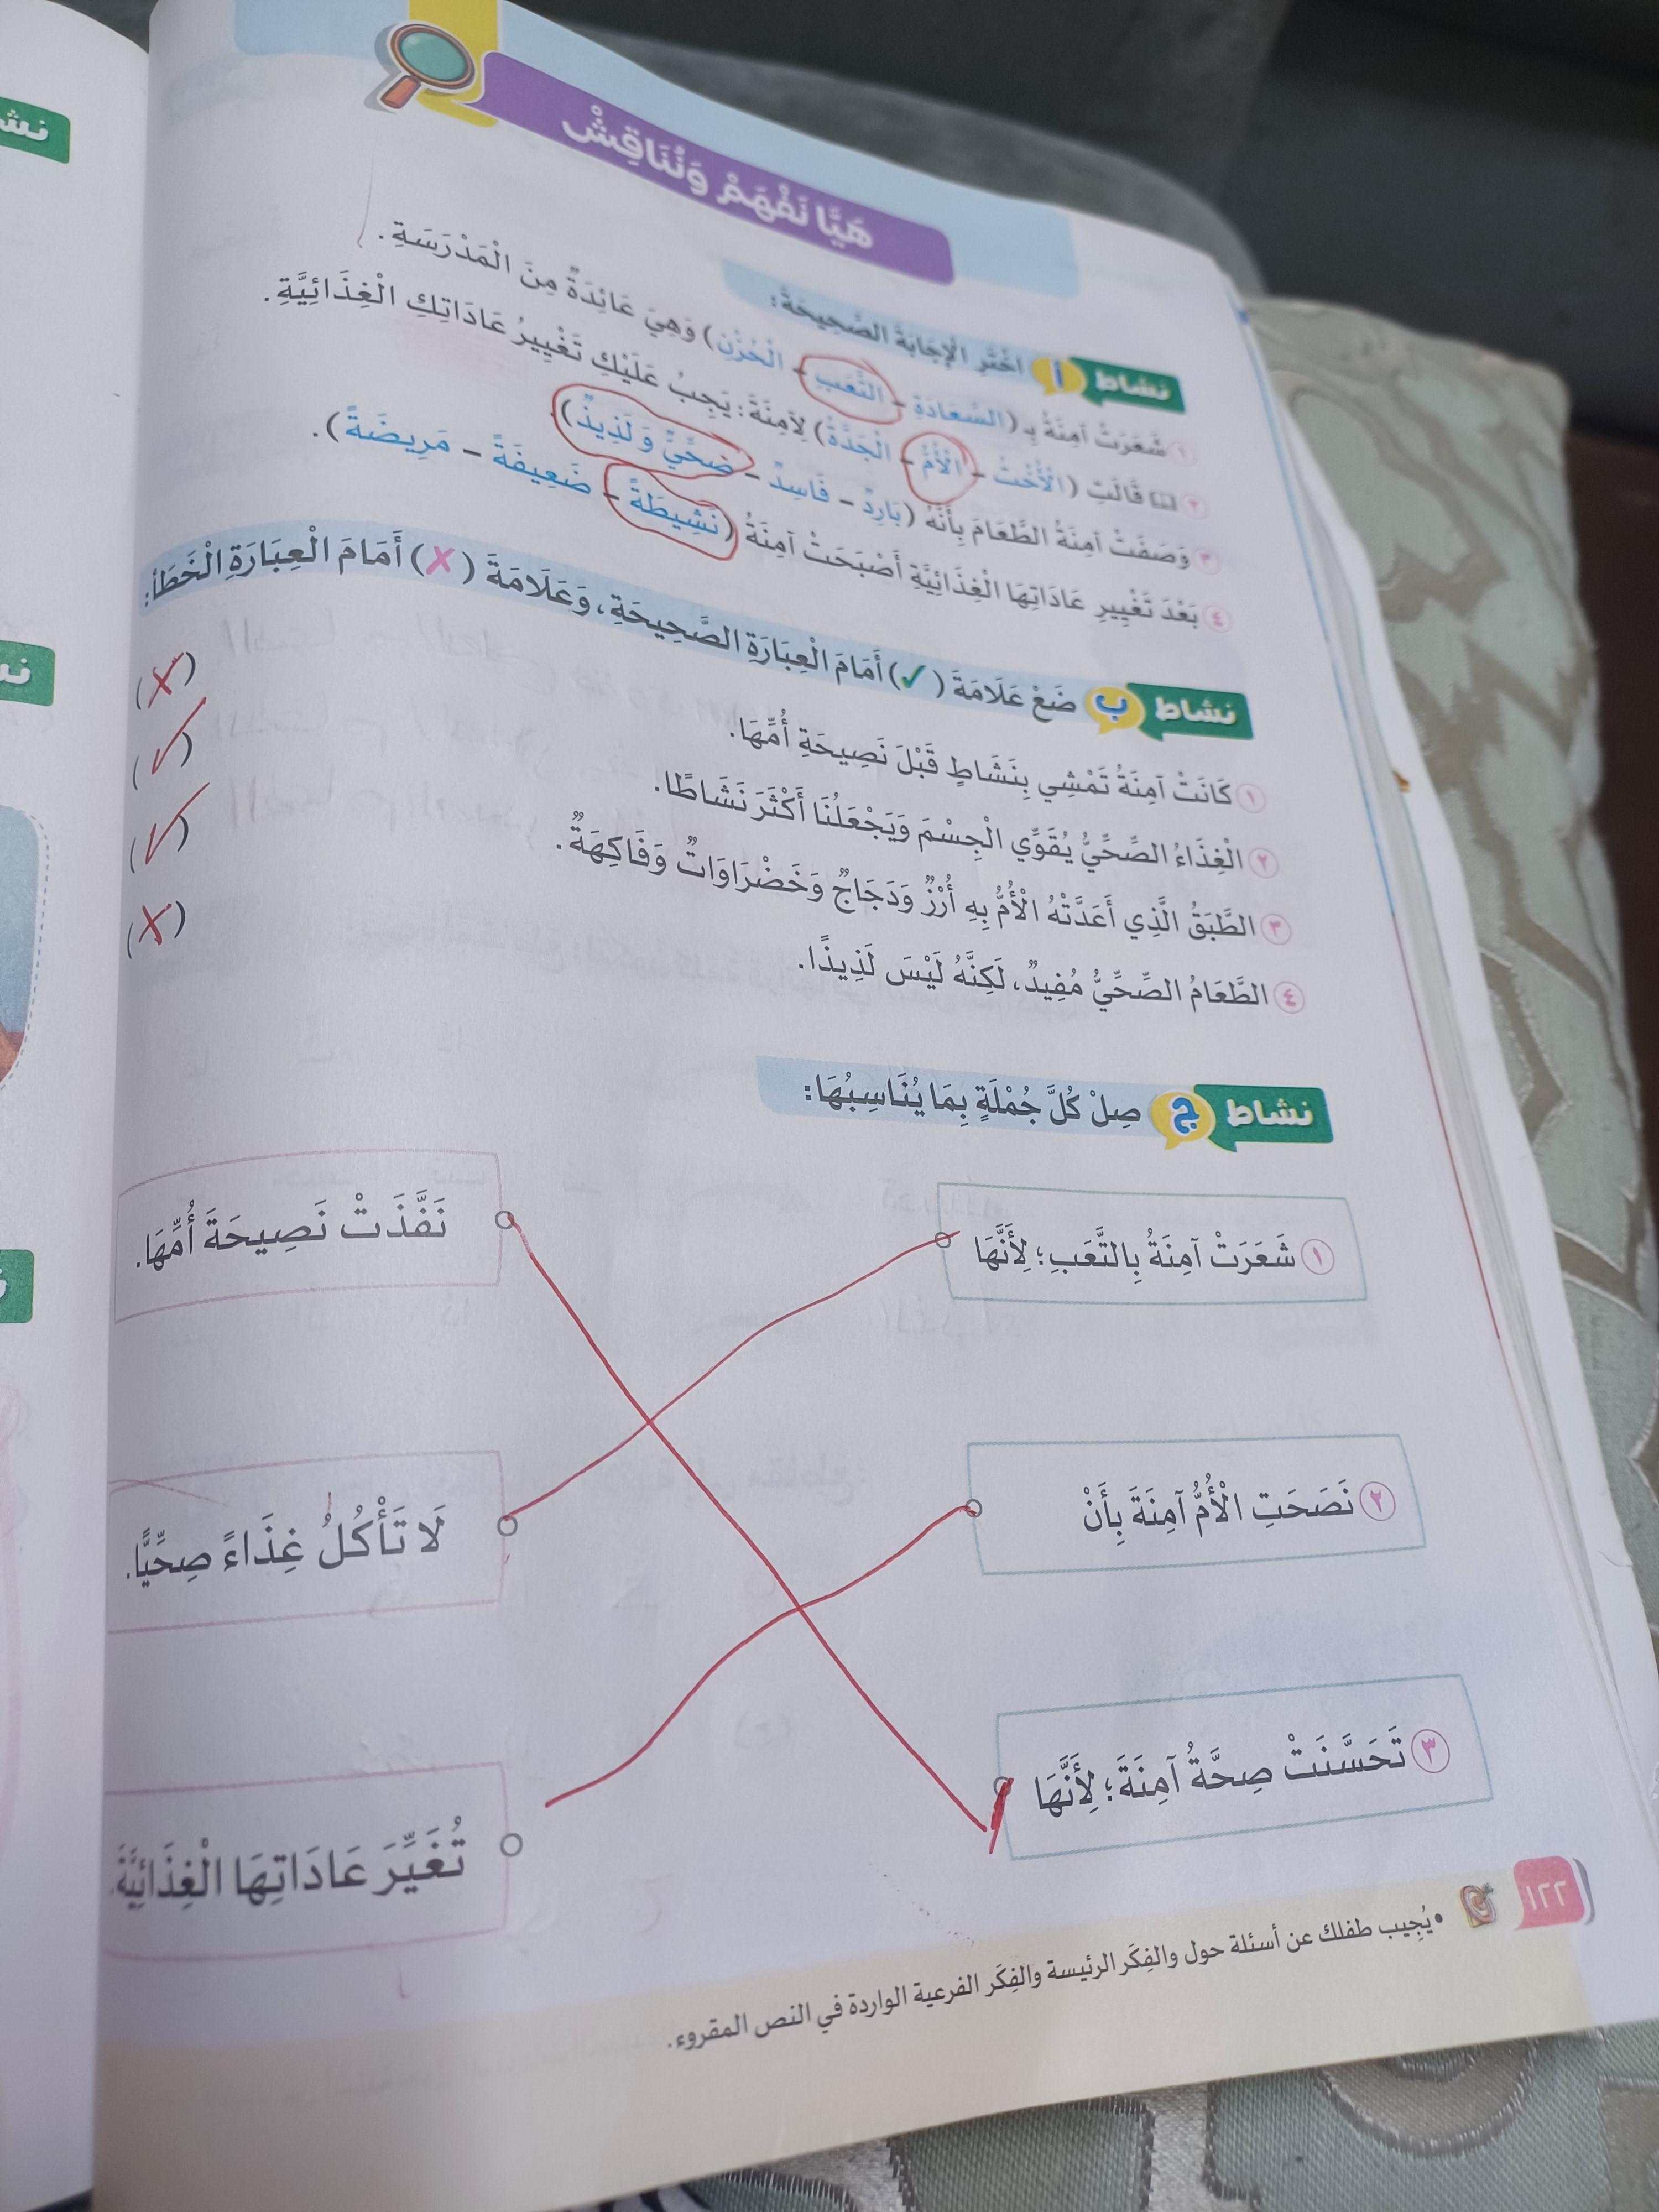 هَيَّا نَفْهَمْ وَنُنَاقِشْ
نشاط أ اخْتَرِ الْإِجَابَةَ الصَّحِيحَةَ:
١ شَعَرَتْ آمِنَةُ بِـ (السَّعَادَةِ - التَّعَبِ - الْحُزْنِ) وَهِيَ عَائِدَةٌ مِنَ الْمَدْرَسَةِ.
٢ قَالَتِ (الْأُخْتُ - الْأُمُّ - الْجَدَّةُ) لِآمِنَةَ: يَجِبُ عَلَيْكِ تَغْيِيرُ عَادَاتِكِ الْغِذَائِيَّةِ.
٣ وَصَفَتْ آمِنَةُ الطَّعَامَ بِأَنَّهُ (بَارِدٌ - فَاسِدٌ - صِحِّيٌّ وَلَذِيذٌ).
٤ بَعْدَ تَغْيِيرِ عَادَاتِهَا الْغِذَائِيَّةِ أَصْبَحَتْ آمِنَةُ (نَشِيطَةً - ضَعِيفَةً - مَرِيضَةً).
نشاط ب ضَعْ عَلَامَةَ (✓) أَمَامَ الْعِبَارَةِ الصَّحِيحَةِ، وَعَلَامَةَ (✗) أَمَامَ الْعِبَارَةِ الْخَطَأ:
١ كَانَتْ آمِنَةُ تَمْشِي بِنَشَاطٍ قَبْلَ نَصِيحَةِ أُمِّهَا. (✗)
٢ الْغِذَاءُ الصِّحِّيُّ يُقَوِّي الْجِسْمَ وَيَجْعَلُنَا أَكْثَرَ نَشَاطًا. (✓)
٣ الطَّبَقُ الَّذِي أَعَدَّتْهُ الْأُمُّ بِهِ أُرْزٌ وَدَجَاجٌ وَخَضْرَاوَاتٌ وَفَاكِهَةٌ. (✓)
٤ الطَّعَامُ الصِّحِّيُّ مُفِيدٌ، لَكِنَّهُ لَيْسَ لَذِيذًا. (✗)
نشاط ج صِلْ كُلَّ جُمْلَةٍ بِمَا يُنَاسِبُهَا:
١ شَعَرَتْ آمِنَةُ بِالتَّعَبِ؛ لِأَنَّهَا
نَفَّذَتْ نَصِيحَةَ أُمِّهَا.
٢ نَصَحَتِ الْأُمُّ آمِنَةَ بِأَنْ
لَا تَأْكُلُ غِذَاءً صِحِّيًّا.
٣ تَحَسَّنَتْ صِحَّةُ آمِنَةَ؛ لِأَنَّهَا
تُغَيِّرَ عَادَاتِهَا الْغِذَائِيَّةَ.
١٢٢
• يُجِيب طفلك عن أسئلة حول والفِكَر الرئيسة والفِكَر الفرعية الواردة في النص المقروء.